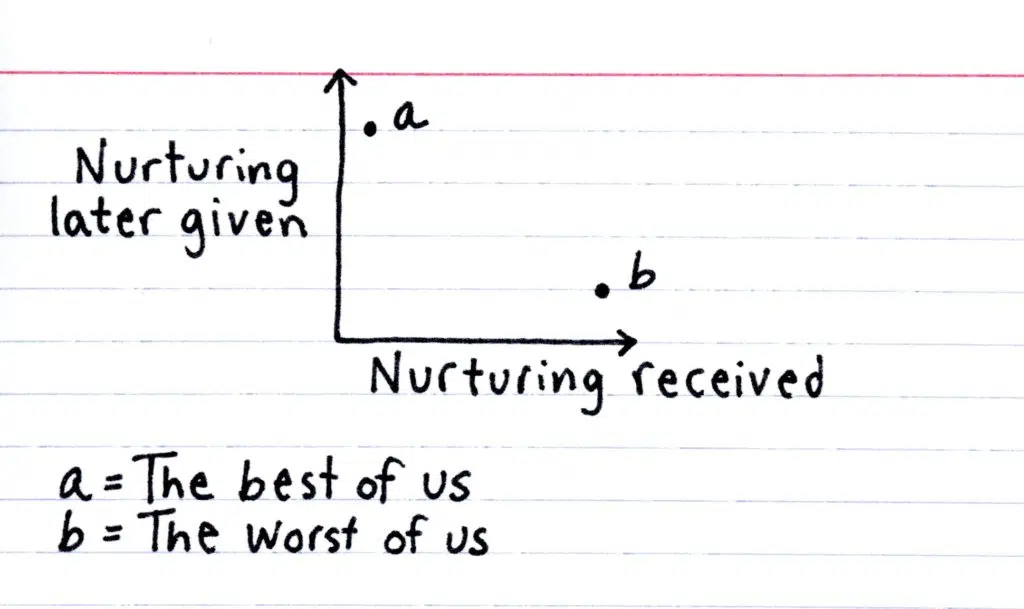 a
Nurturing
later given
b
Nurturing received
a = The best of us
b = The worst of us